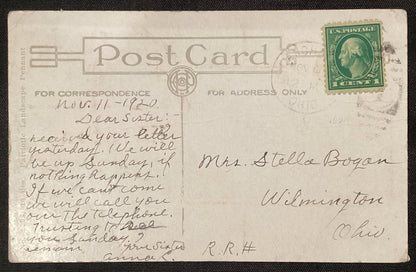 Post Card
FOR CORRESPONDENCE
FOR ADDRESS ONLY
U.S. POSTAGE
1 CENT 1
OHIO
Nov. 11-1920.
Dear Sister:-
received your letter
yesterday. We will
be up Sunday, if
nothing happens.
If we cant come
we will call you
over the telephone.
Trusting to see
you Sunday I
remain your Sister
Anna L.
Mrs. Stella Bogan
Wilmington
Ohio.
R.R.#